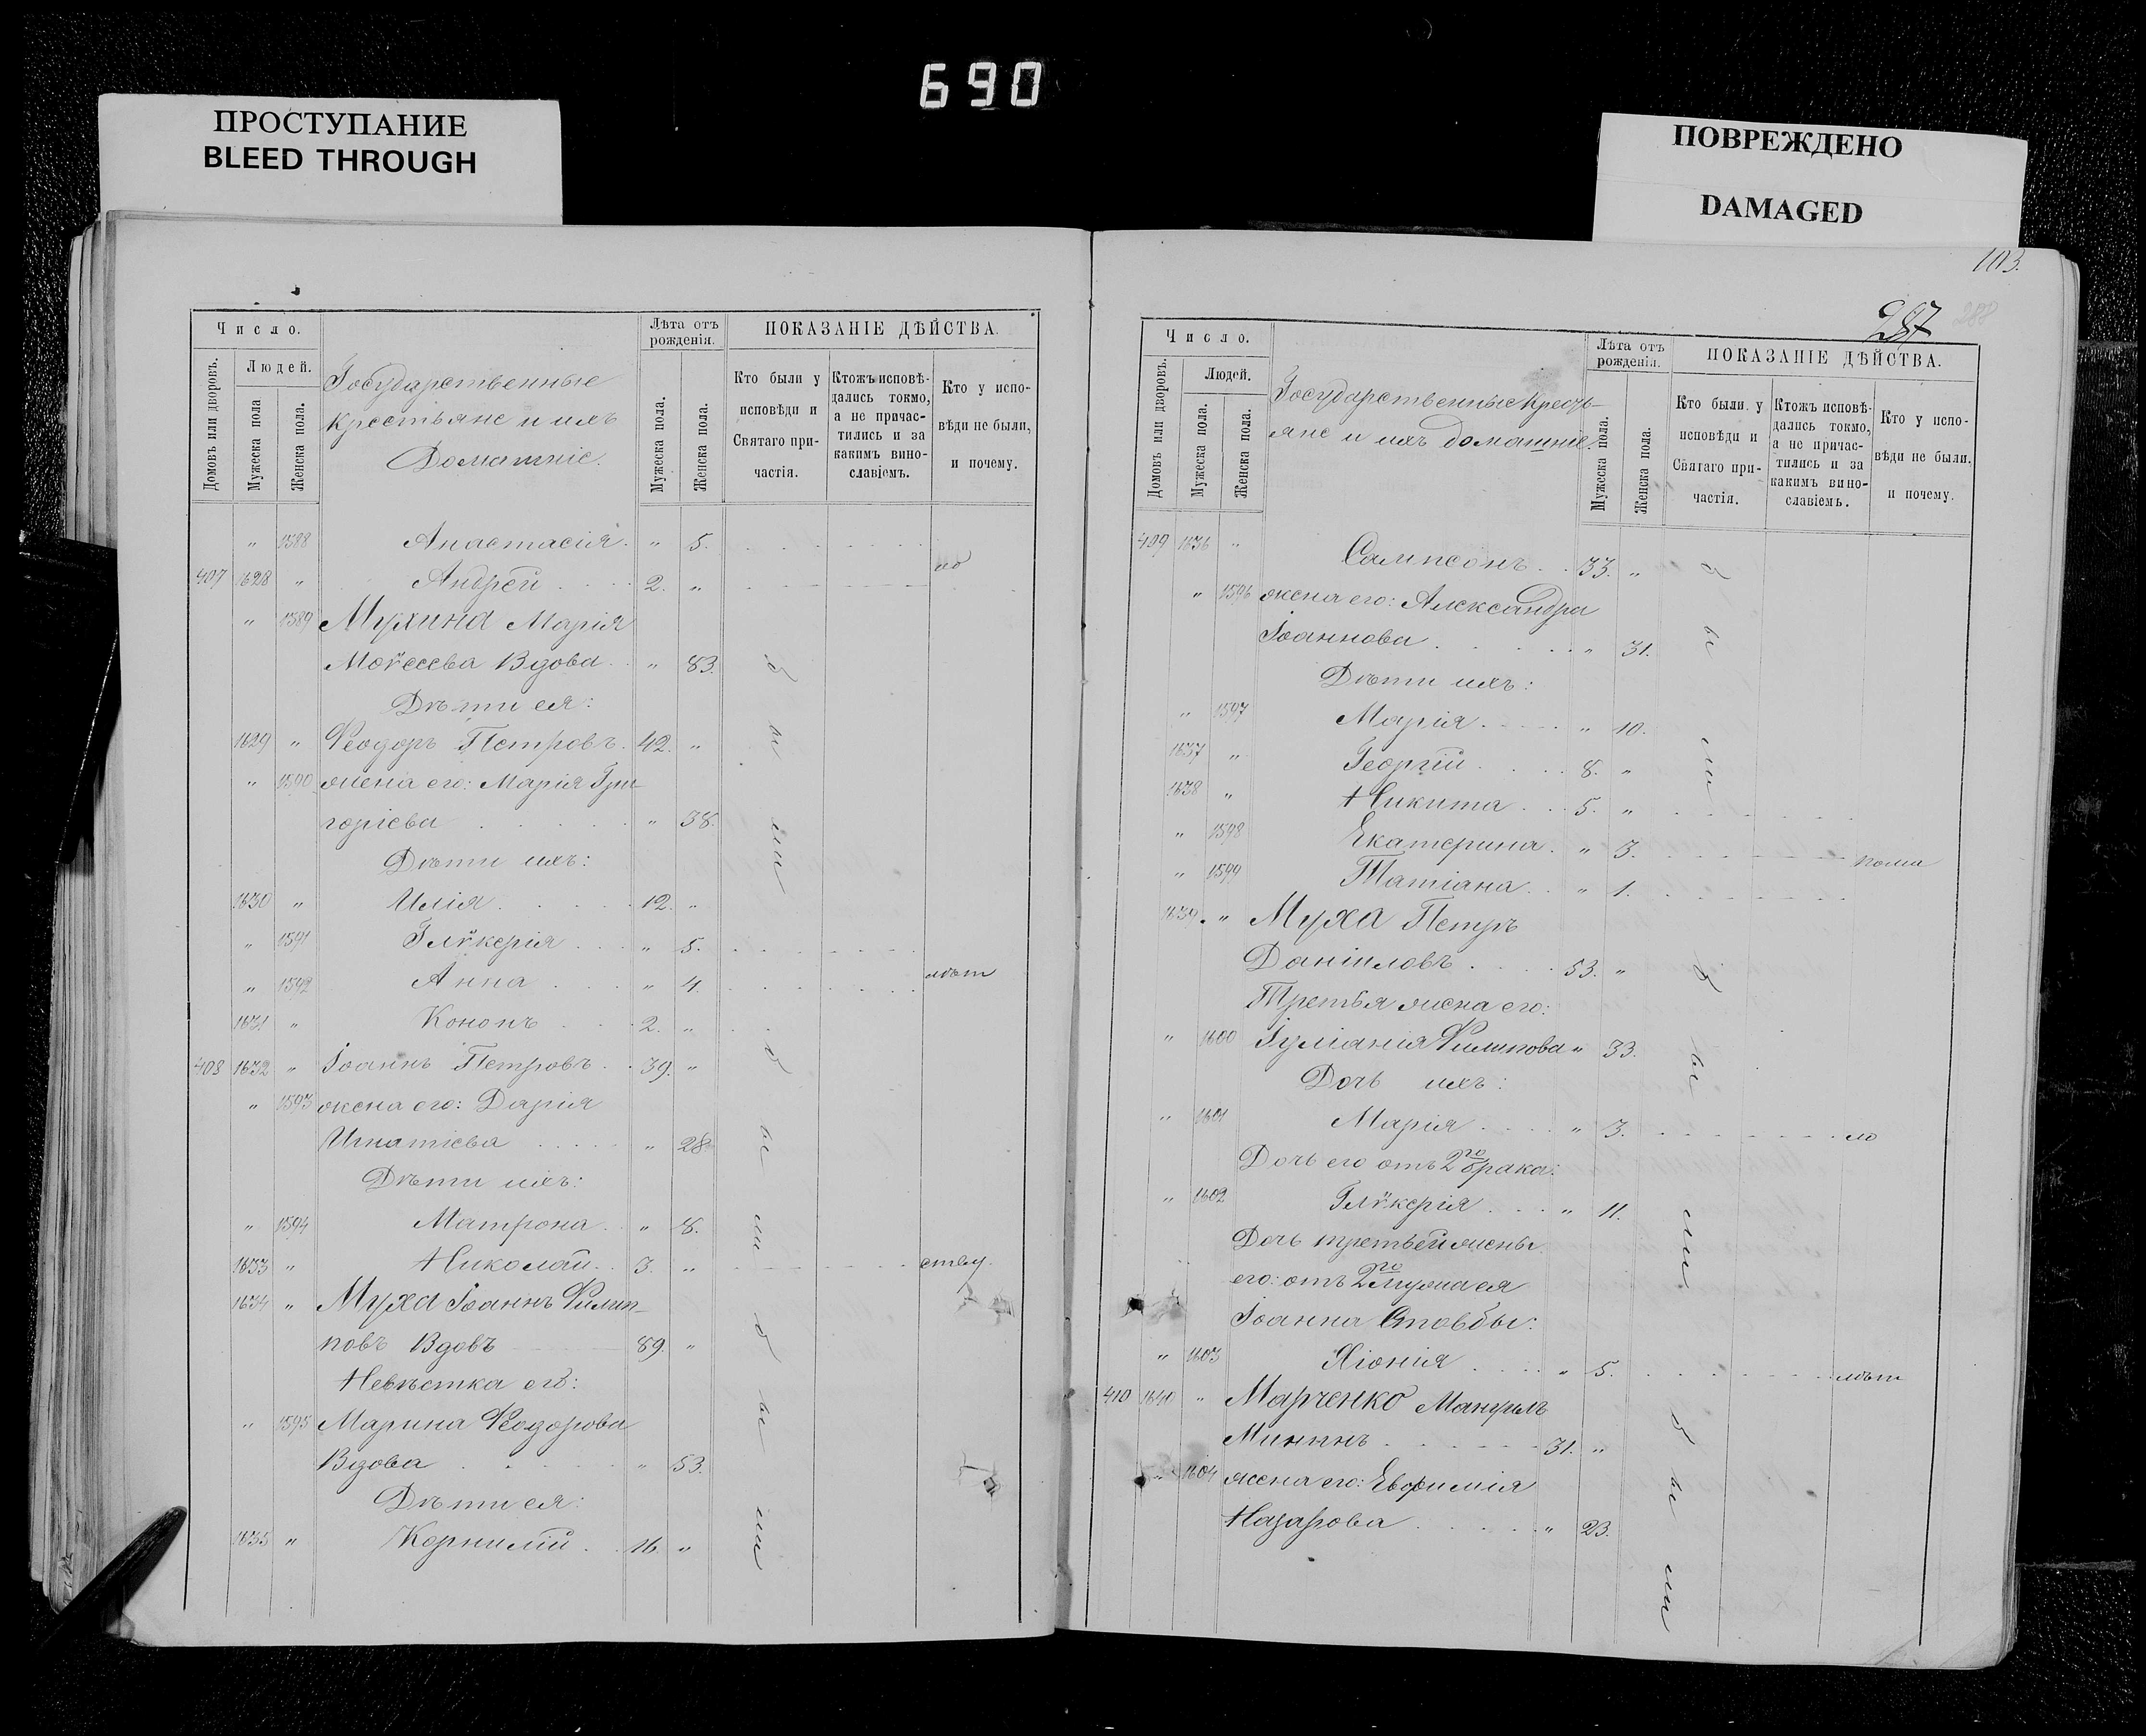 690
ПРОСТУПАНИЕ
BLEED THROUGH
ПОВРЕЖДЕНО
DAMAGED
Число.
Домовъ или дворовъ.
Людей.
Мужеска пола
Женска пола.
Государственные
крестьяне и ихъ
Домашніе.
Лѣта отъ
рожденія.
Мужеска пола.
Женска пола.
ПОКАЗАНІЕ ДѢЙСТВА.
Кто были у
исповѣди и
Святаго при-
частія.
Ктожъ исповѣ-
дались токмо,
а не причас-
тились и за
какимъ вино-
славіемъ.
Кто у испо-
вѣди не были,
и почему.
" 1588 Анастасія. " 5.
407 1628 " Андрей 2. " по
" 1589 Мухина Марія
Моѵсеева Вдова " 83.
Дѣти ея:
1629 " Ѳеодоръ Петровъ. 42. "
" 1590 жена его: Марія Гри-
горіева " 38.
Дѣти ихъ:
1630 " Илія 12. "
" 1591 Глѵкерія " 5.
" 1592 Анна " 4. лѣт
1631 " Кононъ 2. "
408 1632 " Іоаннъ Петровъ 39. "
" 1593 жена его: Дарія
Игнатіева " 28
Дѣти ихъ:
" 1594 Матрона " 8.
1633 " Николай 3. " ству.
1634 " Муха Іоаннъ Филип-
повъ Вдовъ 89. "
Невѣстка его:
" 1595 Марина Ѳеодорова
Вдова " 53.
Дѣти ея:
1635 " Корнилій 16. "
были
были
были
103.
287
288
Число.
Домовъ или дворовъ.
Людей.
Мужеска пола.
Женска пола.
Государственные Кресть-
яне и ихъ домашніе.
Лѣта отъ
рожденія.
Мужеска пола.
Женска пола.
ПОКАЗАНІЕ ДѢЙСТВА.
Кто были у
исповѣди и
Святаго при-
частія.
Ктожъ исповѣ-
дались токмо,
а не причас-
тились и за
какимъ вино-
славіемъ.
Кто у испо-
вѣди не были,
и почему.
409 1636 " Сампсонъ 33. "
" 1596 жена его: Александра
Іоаннова " 31.
Дѣти ихъ:
" 1597 Марія " 10.
1637 " Георгій 8. "
1638 " Никита 5. "
" 1598 Екатерина " 3.
" 1599 Татіана " 1.
1639 " Муха Петръ
Даніиловъ 53. "
Третья жена его:
" 1600 Іуліанія Филипова " 33.
Дочь ихъ:
" 1601 Марія " 3. ло
Дочь его отъ 2го брака:
" 1602 Глѵкерія " 11.
Дочь третьей жены
его: отъ 2го мужа ея
Іоанна Стовбы:
" 1603 Хіонія " 5. лѣт
410 1640 " Марченко Мануилъ
Мининъ 31. "
" 1604 жена его: Евфимія
Назарова " 23.
были
были
были